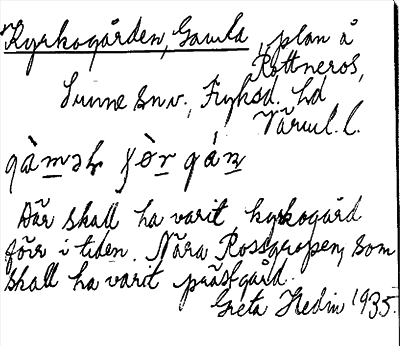 Kyrkogården, Gamla, plan å
Rottneros,
Sunne sn v., Fryksd. hd
Värml. l.
gàməl
Där skall ha varit kyrkogård
förr i tiden. Nära Rossgropen, som
skall ha varit prästgård.
Greta Hedin 1935.